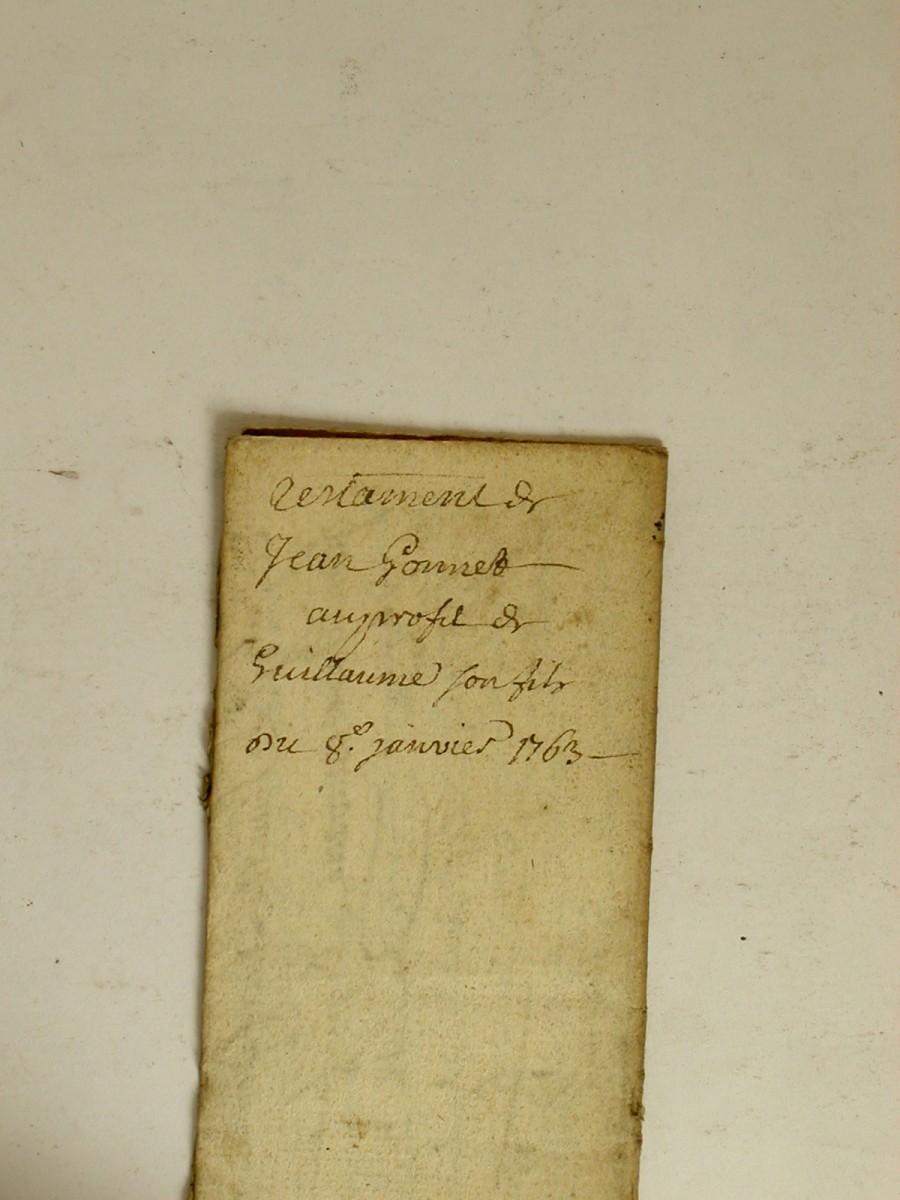 testament de
Jean Gonnet
au profit de
Guillaume son fils
Du 8e. janvier 1763